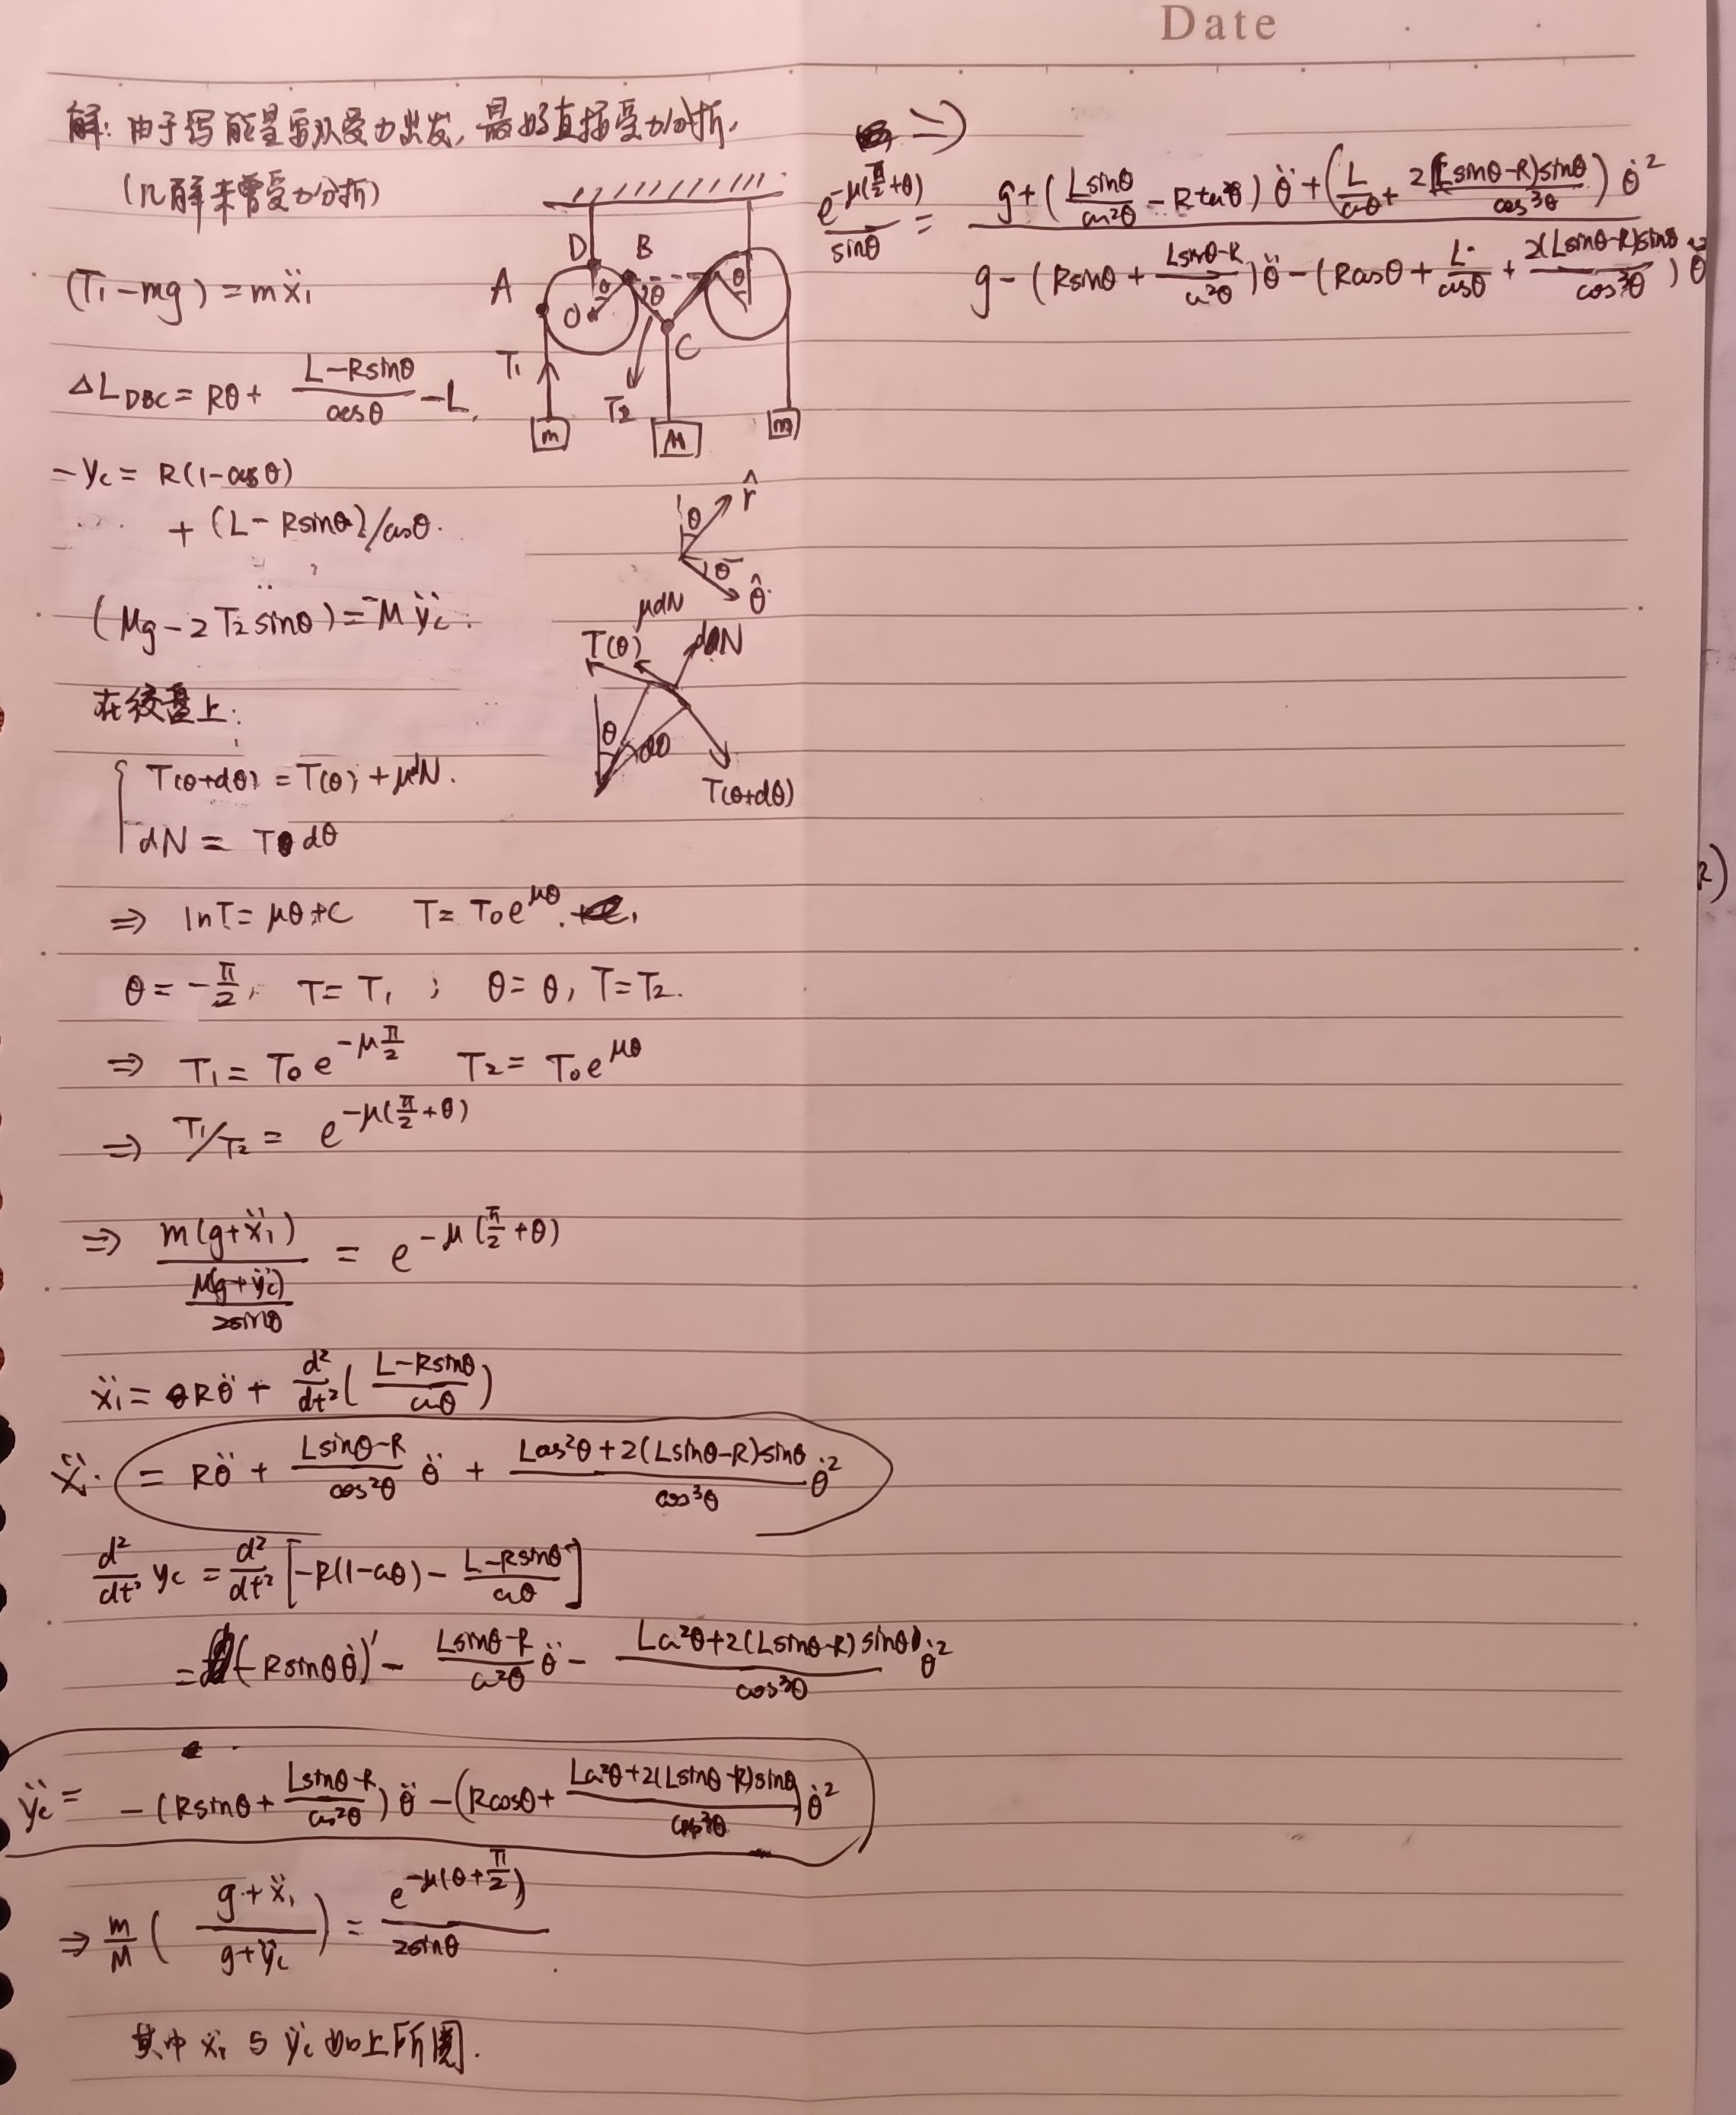 Date
解: 由于写能量需从受力出发, 最好直接受力分析.
(几解未曾受力分析)
(T₁-mg) = mẍ₁
ΔL_DBC = Rθ + (L-Rsinθ)/cosθ - L.
-y_c = R(1-cosθ)
+ (L-Rsinθ)/cosθ.
(Mg-2T₂sinθ) = -Mÿ_c.
在绞盘上:
T(θ+dθ) = T(θ) + μdN.
dN = Tdθ
⇒ lnT = μθ+c T = T₀e^{μθ}.
θ = -π/2, T = T₁ ; θ = θ, T = T₂.
⇒ T₁ = T₀e^{-μπ/2} T₂ = T₀e^{μθ}
⇒ T₁/T₂ = e^{-μ(π/2+θ)}
⇒ m(g+ẍ₁) / (M(g+ÿ_c)/2sinθ) = e^{-μ(π/2+θ)}
ẍ₁ = Rθ̈ + d²/dt² ((L-Rsinθ)/cosθ)
ẍ₁ = Rθ̈ + (Lsinθ-R)/cos²θ θ̈ + (Lcos²θ+2(Lsinθ-R)sinθ)/cos³θ θ̇²
d²/dt² y_c = d²/dt² [-R(1-cosθ) - (L-Rsinθ)/cosθ]
= (-Rsinθθ̇)' - (Lsinθ-R)/cos²θ θ̈ - (Lcos²θ+2(Lsinθ-R)sinθ)/cos³θ θ̇²
ÿ_c = -(Rsinθ + (Lsinθ-R)/cos²θ) θ̈ - (Rcosθ + (Lcos²θ+2(Lsinθ-R)sinθ)/cos³θ) θ̇²
⇒ m/M ((g+ẍ₁)/(g+ÿ_c)) = e^{-μ(θ+π/2)}/2sinθ
其中 ẍ₁ 与 ÿ_c 如上所圈.
D
B
A
O
θ
θ
θ
C
T₁
T₂
m
M
m
r̂
θ
θ
θ̂
μdN
T(θ)
dN
θ
dθ
T(θ+dθ)
⇒
e^{-μ(π/2+θ)}/sinθ = [g + (Lsinθ/cos²θ - Rtan²θ) θ̈ + (L/cosθ + 2(Lsinθ-R)sinθ/cos³θ) θ̇²] / [g - (Rsinθ + (Lsinθ-R)/cos²θ) θ̈ - (Rcosθ + L/cosθ + 2(Lsinθ-R)sinθ/cos³θ) θ̇²]